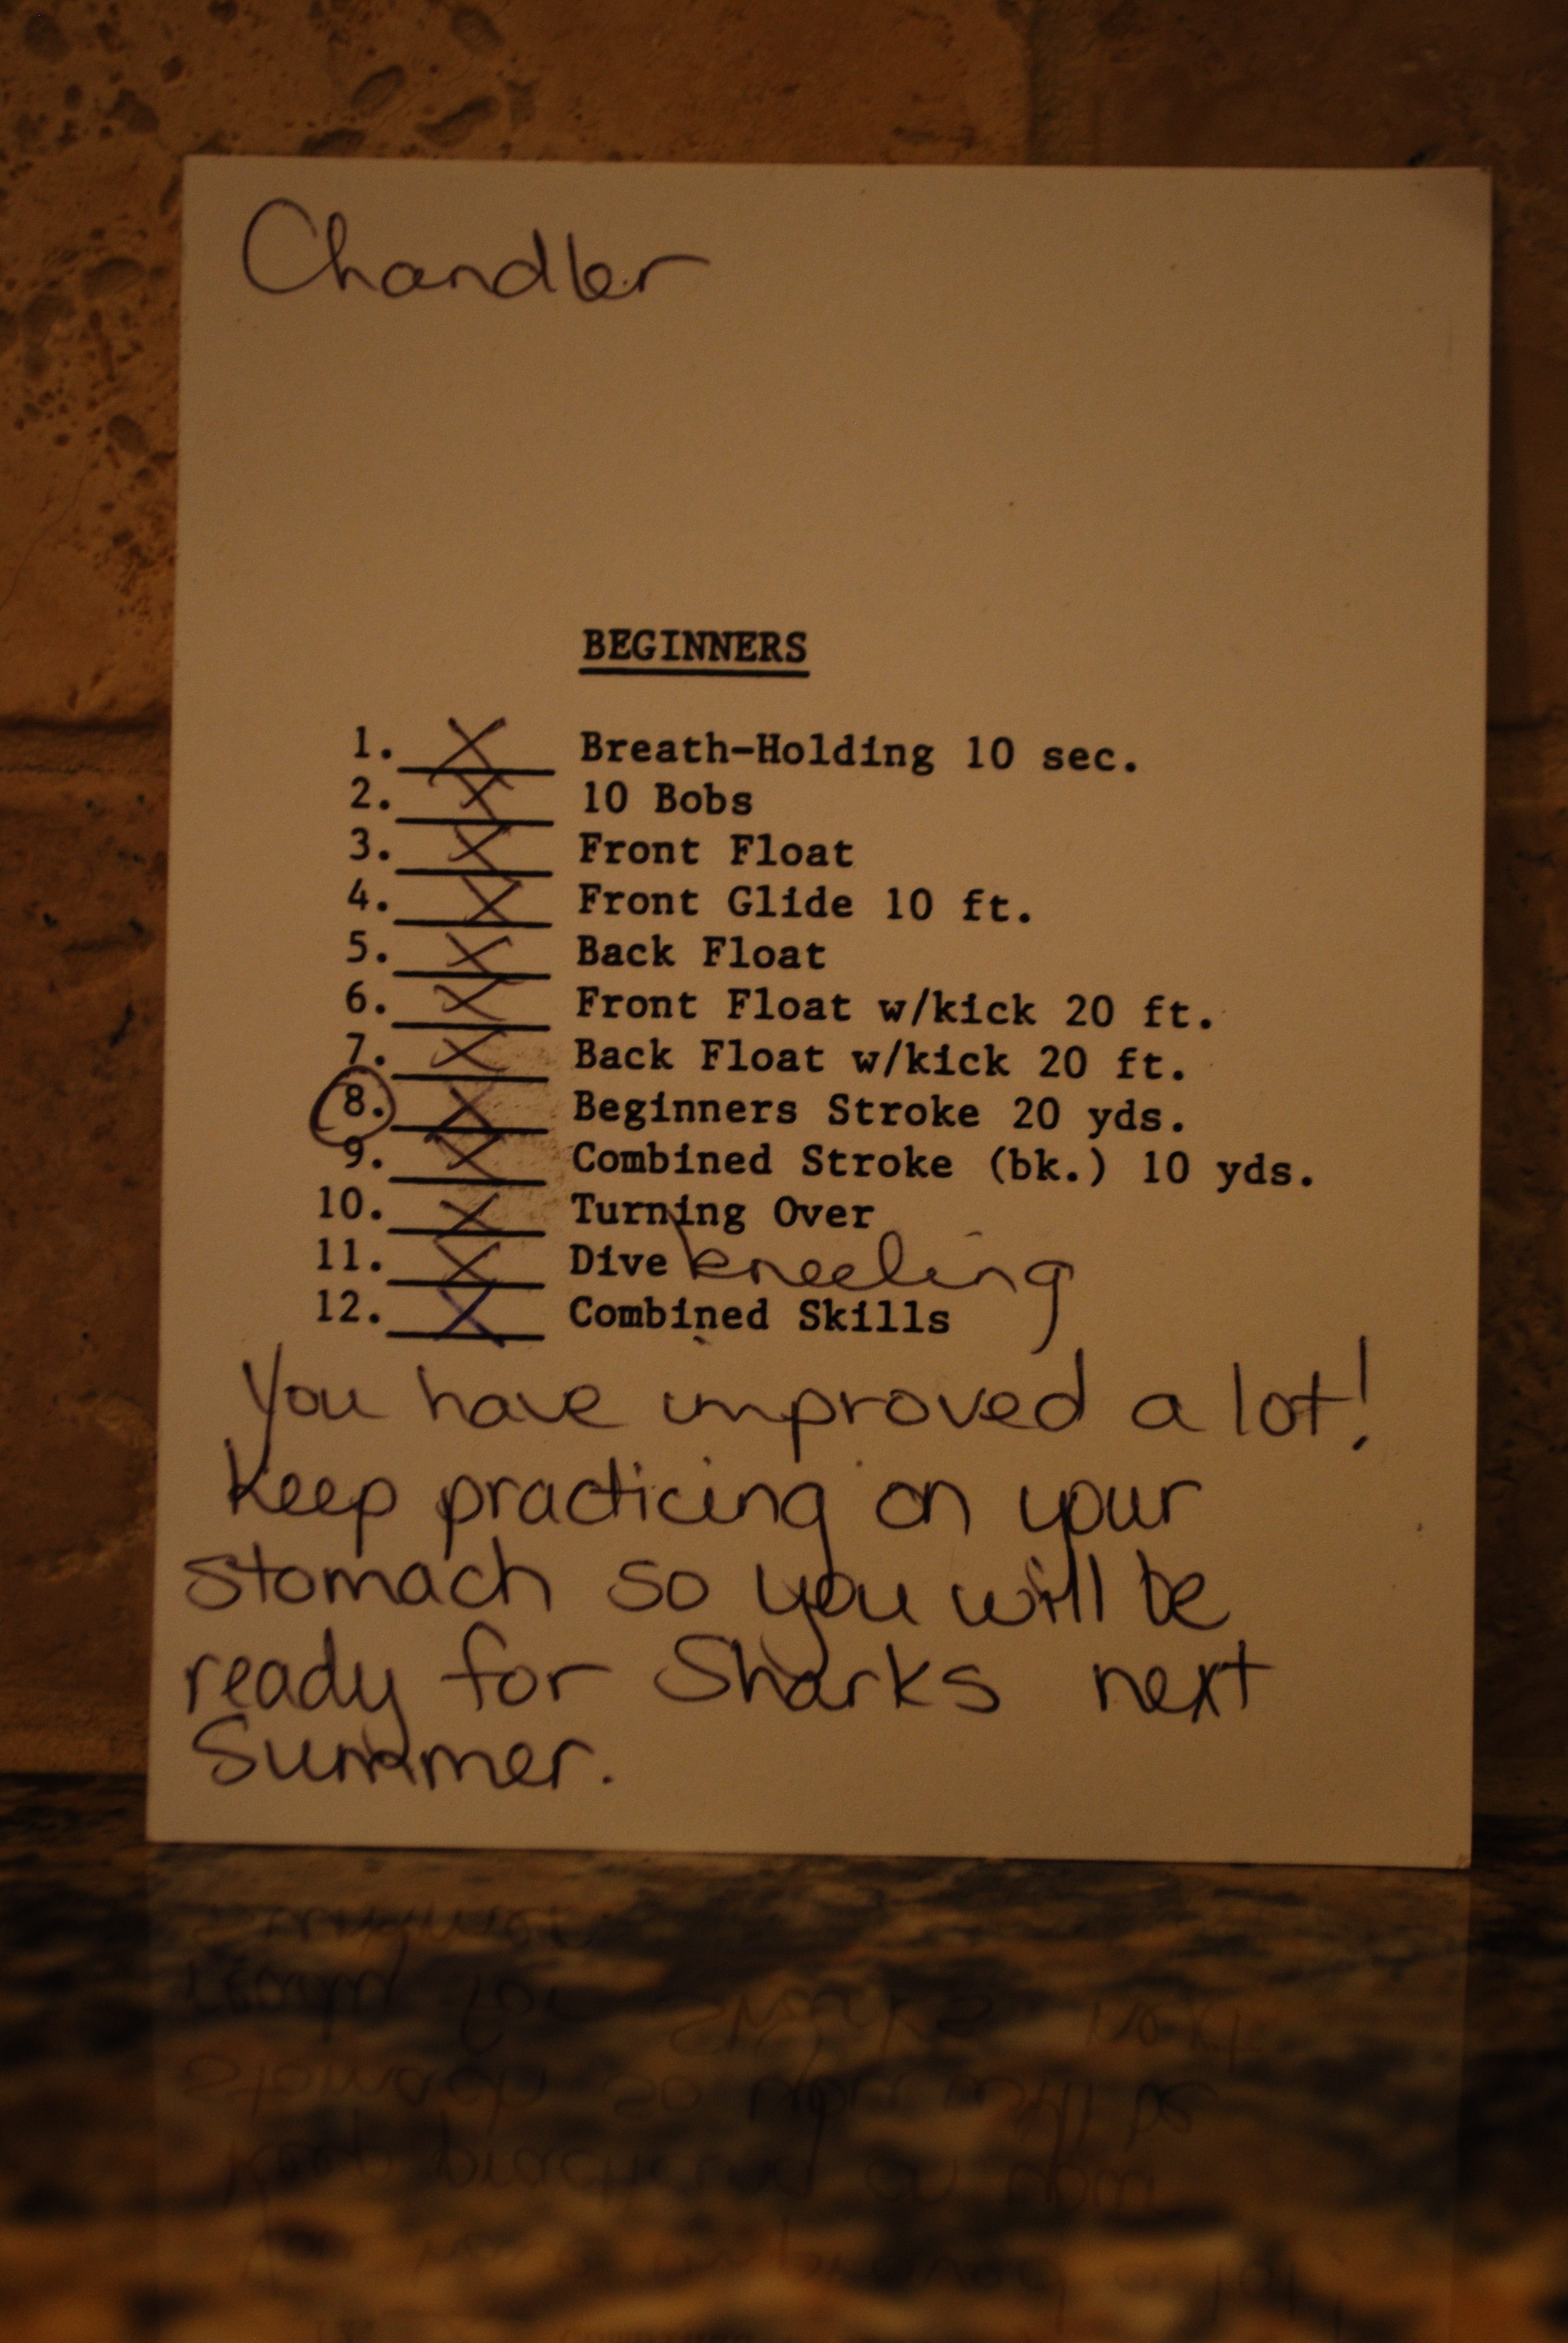 Chandler
BEGINNERS
1. X Breath-Holding 10 sec.
2. X 10 Bobs
3. X Front Float
4. X Front Glide 10 ft.
5. X Back Float
6. X Front Float w/kick 20 ft.
7. X Back Float w/kick 20 ft.
8. X Beginners Stroke 20 yds.
9. X Combined Stroke (bk.) 10 yds.
10. X Turning Over
11. X Dive kneeling
12. X Combined Skills
You have improved a lot!
Keep practicing on your
stomach so you will be
ready for Sharks next
Summer.